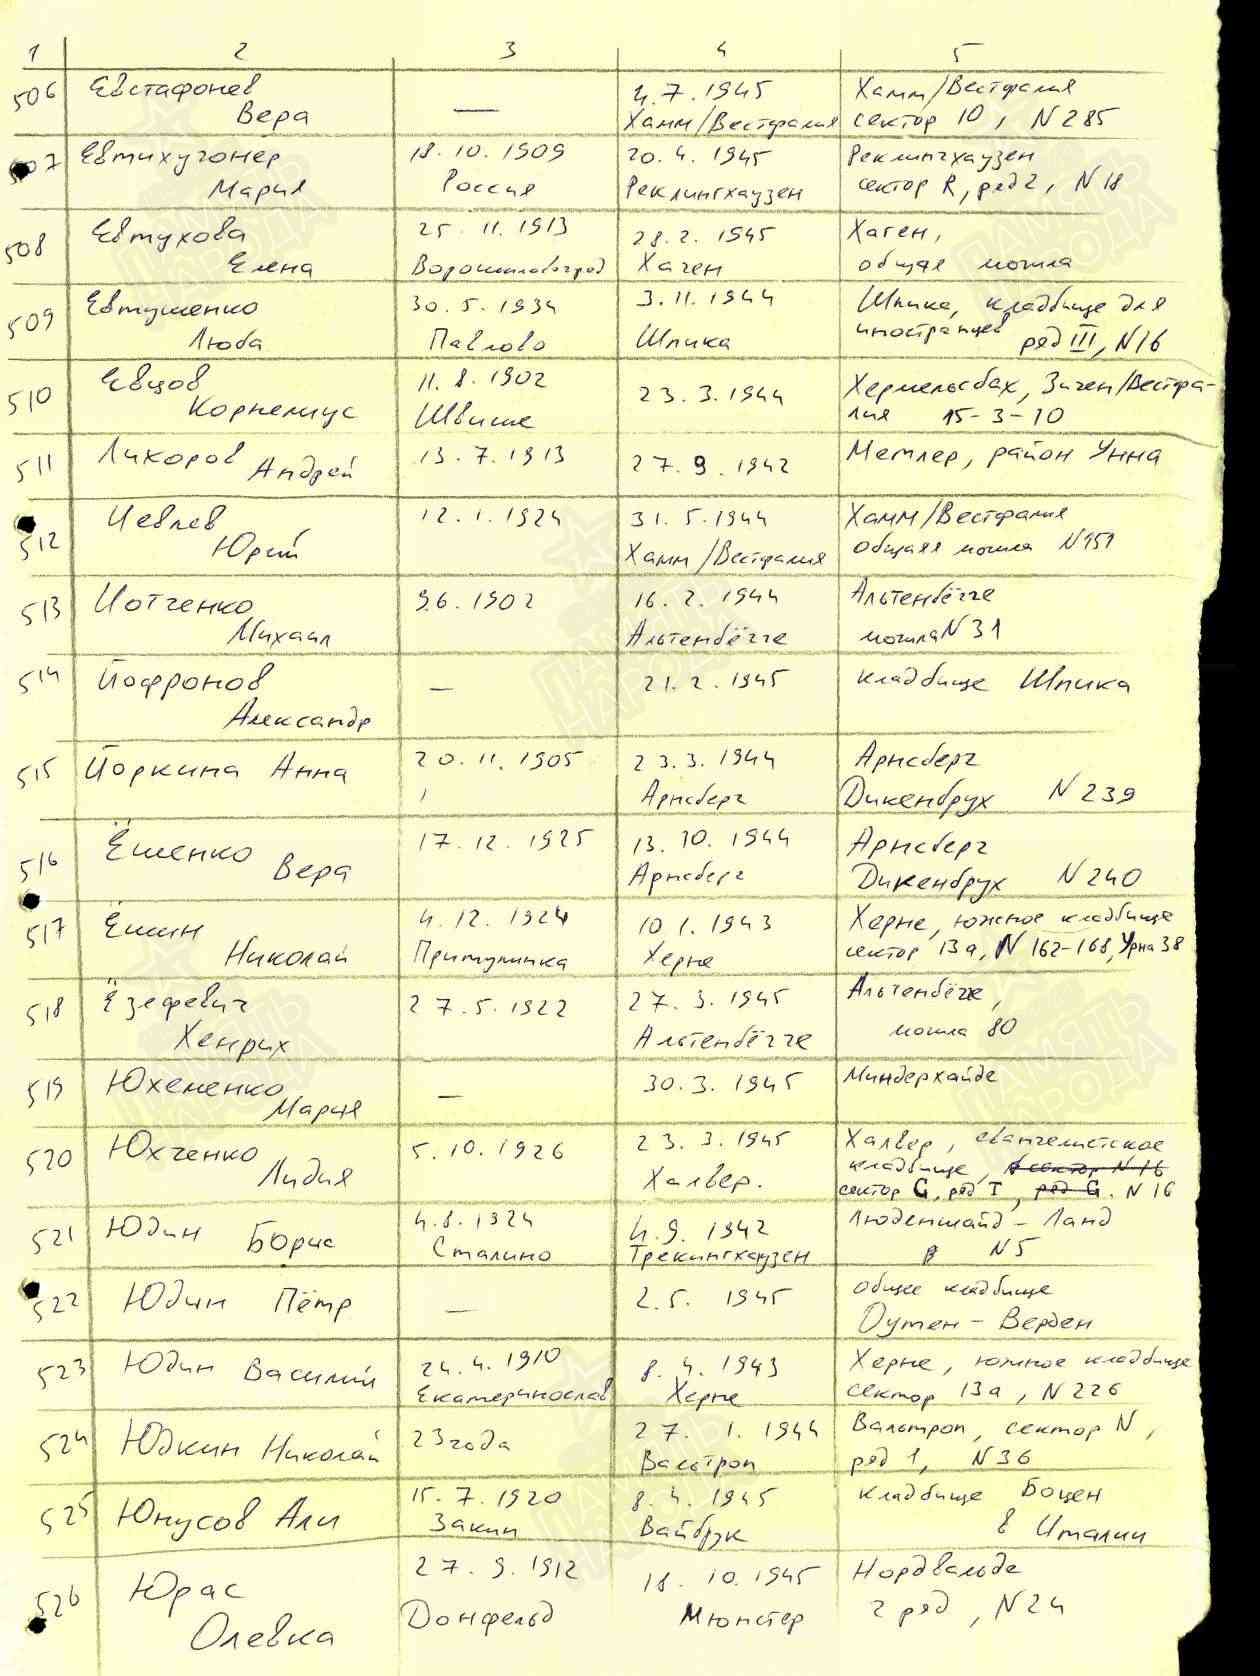 1 2 3 4 5
506 Евстафонев 4.7.1945 Хамм/Вестфалия
Вера — Хамм/Вестфалия сектор 10, N285
507 Евтихугонер 18.10.1909 20.4.1945 Реклингхаузен
Мария Россия Реклингхаузен сектор R, ряд 2, N18
508 Евтухова 25.11.1913 28.2.1945 Хаген,
Елена Ворошиловоград Хаген общая могила
509 Евтушенко 30.5.1934 3.11.1944 Шпика, кладбище для
Люба Павлово Шпика иностранцев ряд III, N16
510 Евцов 11.8.1902 23.3.1944 Хермельсбах, Зиген/Вестфа-
Корнелиус Швише лия 15-3-10
511 Лихоров Андрей 13.7.1913 27.9.1942 Метлер, район Унна
512 Иевлев 12.1.1924 31.5.1944 Хамм/Вестфалия
Юрий Хамм/Вестфалия общая могила N151
513 Иотченко 9.6.1902 16.2.1944 Альтенбёгге
Михаил Альтенбёгге могила N31
514 Йофронов — 21.2.1945 кладбище Шпика
Александр
515 Йоркина Анна 20.11.1905 23.3.1944 Арнсберг
Арнсберг Дикенбрух N239
516 Ёшенко 17.12.1925 13.10.1944 Арнсберг
Вера Арнсберг Дикенбрух N240
517 Ёшин 4.12.1924 10 1.1943 Херне, южное кладбище
Николай Притулинка Херне сектор 13а, N 162-168, Урна 38
518 Ёзефевич 27.5.1922 27.3.1945 Альтенбёгге,
Хенрих Альтенбёгге могила 80
519 Юхеменко — 30.3.1945 Миндерхайде
Мария
520 Юхченко 5.10.1926 23.3.1945 Халвер, евангелистское
Лидия Халвер. кладбище, сектор N16
сектор G, ряд T, ряд G. N16
521 Юдин Борис 4.8.1924 4.9.1942 Люденшайд - Ланд
Сталино Трекингхаузен N5
522 Юдин Пётр — 2.5.1945 общее кладбище
Оутен - Верден
523 Юдин Василий 24.4.1910 8.4.1943 Херне, южное кладбище
Екатеринослав Херне сектор 13а, N226
524 Юдкин Николай 23 года 27.1.1944 Вальтроп, сектор N,
Вальтроп ряд 1, N36
525 Юнусов Али 15.7.1920 8.4.1945 кладбище Боцен
Закип Вайбрук в Италии
526 Юрас 27.9.1912 18.10.1945 Нордвальде
Олевка Донфельд Мюнстер 2 ряд, N24